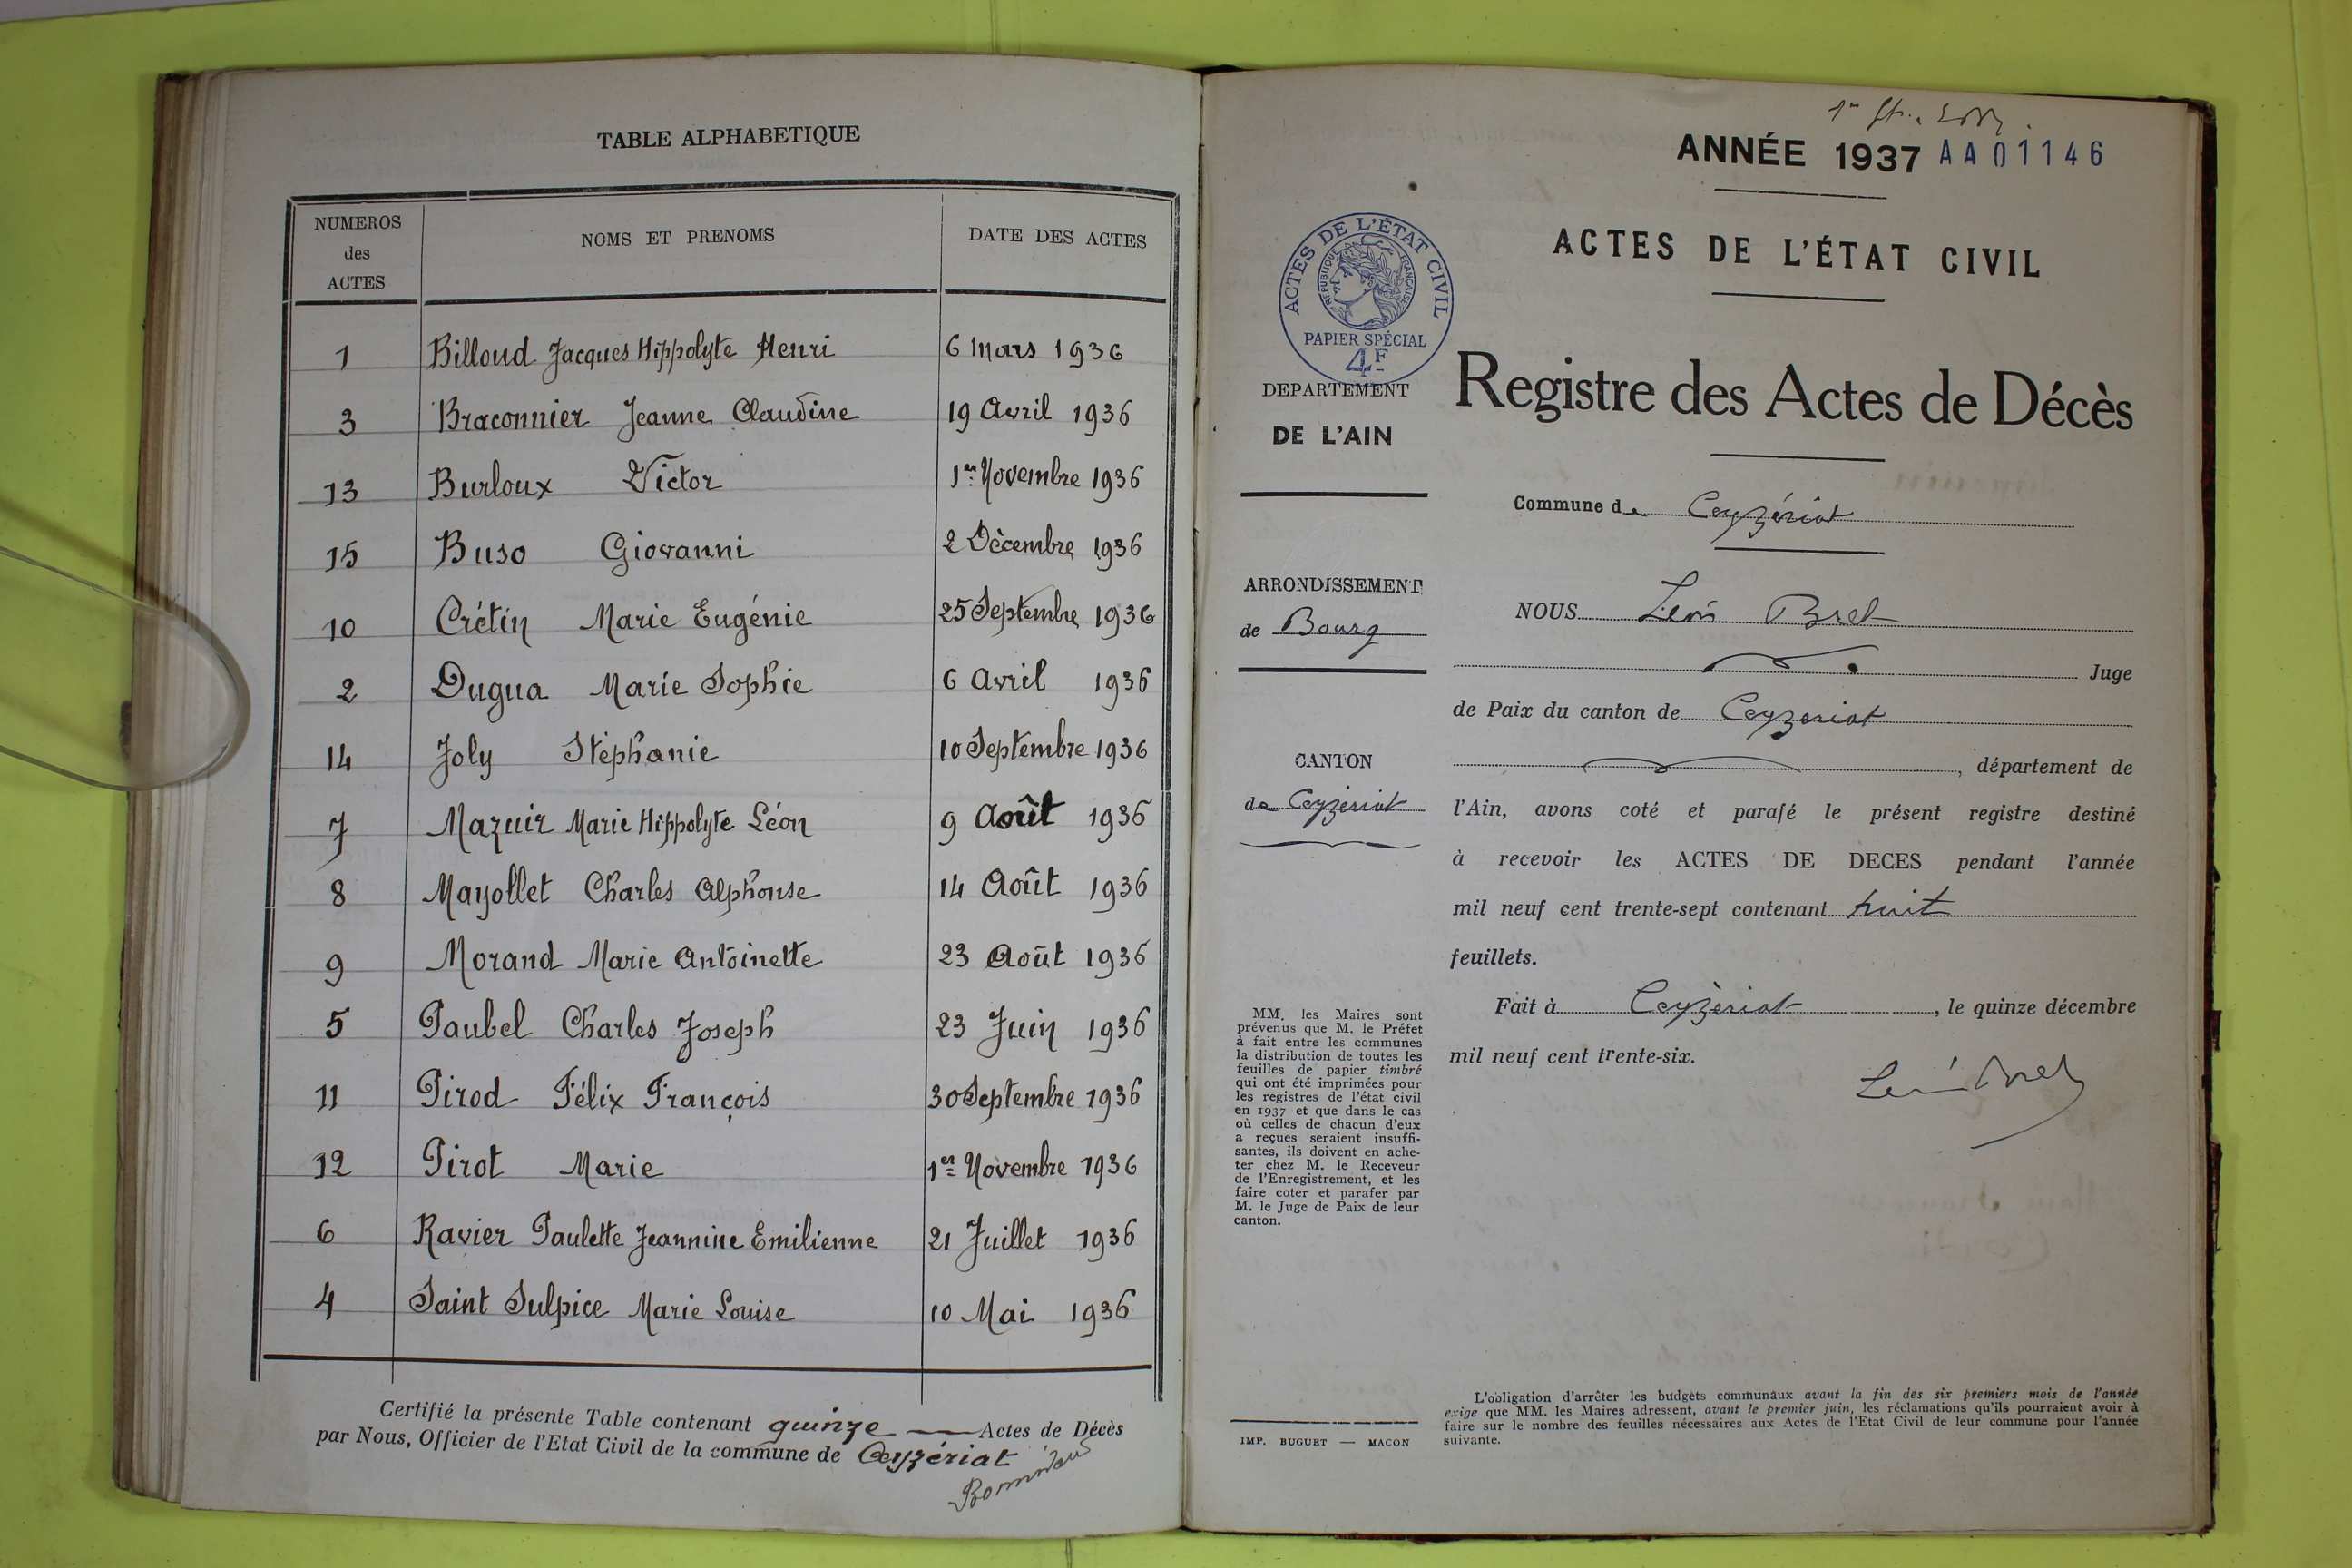 TABLE ALPHABETIQUE
NUMEROS des ACTES NOMS ET PRENOMS DATE DES ACTES
1 Billoud Jacques Hippolyte Henri 6 Mars 1936
3 Braconnier Jeanne Claudine 19 Avril 1936
13 Burloux Victor 1er Novembre 1936
15 Buso Giovanni 2 Décembre 1936
10 Crétin Marie Eugénie 25 Septembre 1936
2 Dugua Marie Sophie 6 Avril 1936
14 Joly Stéphanie 10 Septembre 1936
7 Mazuir Marie Hippolyte Léon 9 Août 1936
8 Mayollet Charles Alphonse 14 Août 1936
9 Morand Marie Antoinette 23 Août 1936
5 Paubel Charles Joseph 23 Juin 1936
11 Pirod Félix François 30 Septembre 1936
12 Pirot Marie 1er Novembre 1936
6 Ravier Paulette Jeannine Emilienne 21 Juillet 1936
4 Saint Sulpice Marie Louise 10 Mai 1936
Certifié la présente Table contenant quinze Actes de Décès
par Nous, Officier de l'Etat Civil de la commune de Ceyzériat
ANNÉE 1937 AA01146
ACTES DE L'ÉTAT CIVIL
ACTES DE L'ÉTAT CIVIL
RÉPUBLIQUE FRANÇAISE
PAPIER SPÉCIAL
4F
DEPARTEMENT
DE L'AIN
Registre des Actes de Décès
Commune de Ceyzériat
ARRONDISSEMENT
de Bourg
CANTON
de Ceyzériat
NOUS Léon Bret
Juge
de Paix du canton de Ceyzeriat
, département de
l'Ain, avons coté et parafé le présent registre destiné
à recevoir les ACTES DE DECES pendant l'année
mil neuf cent trente-sept contenant huit
feuillets.
Fait à Ceyzériat, le quinze décembre
mil neuf cent trente-six.
Léon Bret
MM. les Maires sont
prévenus que M. le Préfet
à fait entre les communes
la distribution de toutes les
feuilles de papier timbré
qui ont été imprimées pour
les registres de l'état civil
en 1937 et que dans le cas
où celles de chacun d'eux
a reçues seraient insuffi-
santes, ils doivent en ache-
ter chez M. le Receveur
de l'Enregistrement, et les
faire coter et parafer par
M. le Juge de Paix de leur
canton.
IMP. BUGUET — MACON
L'obligation d'arrêter les budgets communaux avant la fin des six premiers mois de l'année
exige que MM. les Maires adressent, avant le premier juin, les réclamations qu'ils pourraient avoir à
faire sur le nombre des feuilles nécessaires aux Actes de l'Etat Civil de leur commune pour l'année
suivante.